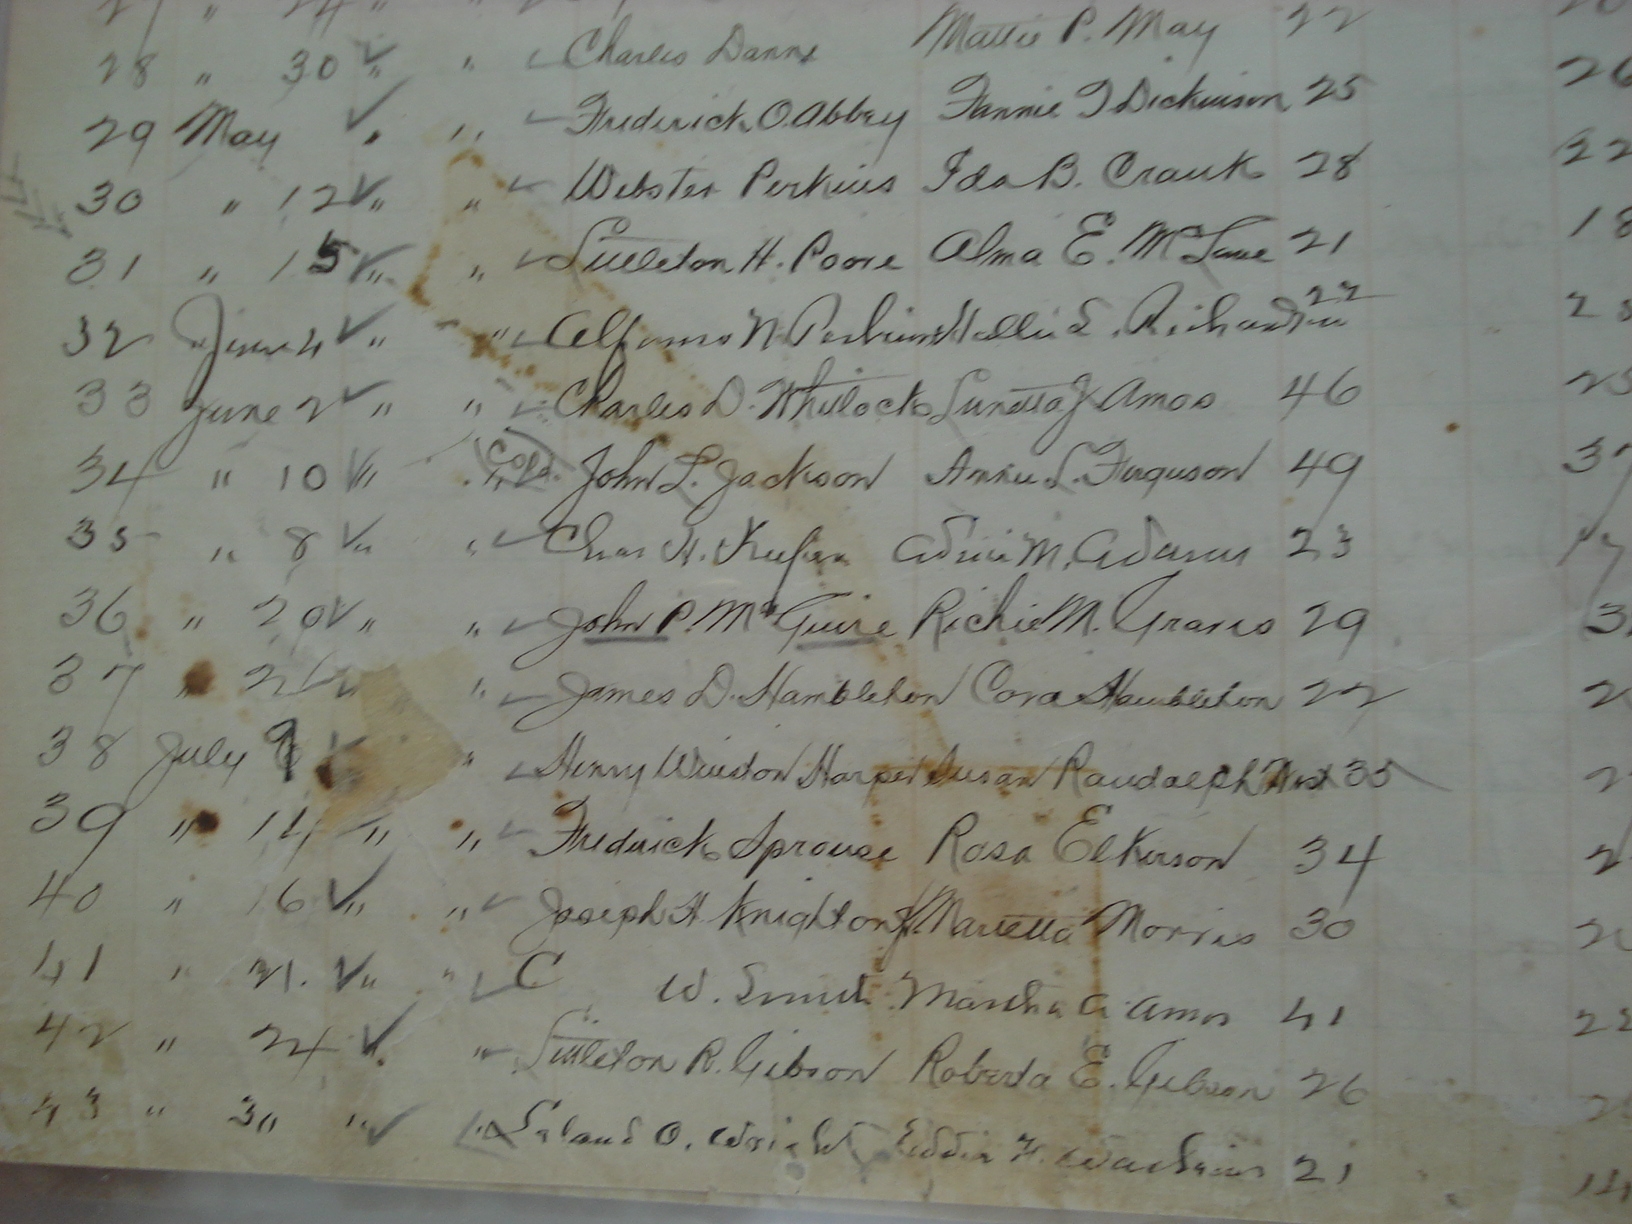 27 " 24 "
28 " 30 " " Charles Danne Mattie P. May 22 26
29 May " " Frederick O. Abbey Fannie T Dickinson 25 26
30 " 12 " " Webster Perkins Ida B. Crank 28 22
31 " 15 " " Littleton H. Poore Alma E. McLane 21 18
32 " June 4 " " Alfonso N. Perkins Hallie L. Richardson 22
33 June 2 " " Charles D. Whitlock Lunetta J Amos 46
34 " 10 " " Cold. John L. Jackson Annie L. Ferguson 49
35 " 8 " " Chas H. M. Adams 23 17
36 " 20 " " John P. McGuire Richie M. Graves 29
37 " " " James D. Hambleton Cora Hambleton 22
38 July 9 " Henry Winston Harper Susan Randolph 35
39 " 14 " " Frederick Sprouse Rosa Elkerson 34
40 " 16 " " Joseph H Knighton Marietta Morris 30
41 " 21. " " C W. Smith Martha A. Amos 41
42 " 24 " " Littleton R. Gibson Roberta E. Gibson 26
43 " 30 " " Leland O. Wright Eddie F. Watkins 21